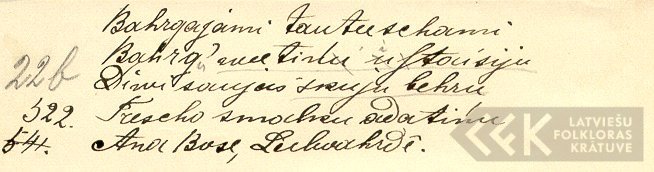 Bahrgajami tauteeschami
22b Bahrg' weetiņu uſtaisiju
Diwi saujas skuju behru
522. Trescho smalku adatiņu
54. Ana Bose, Leelwahrdē.
LATVIEŠU
FOLKLORAS
KRĀTUVE